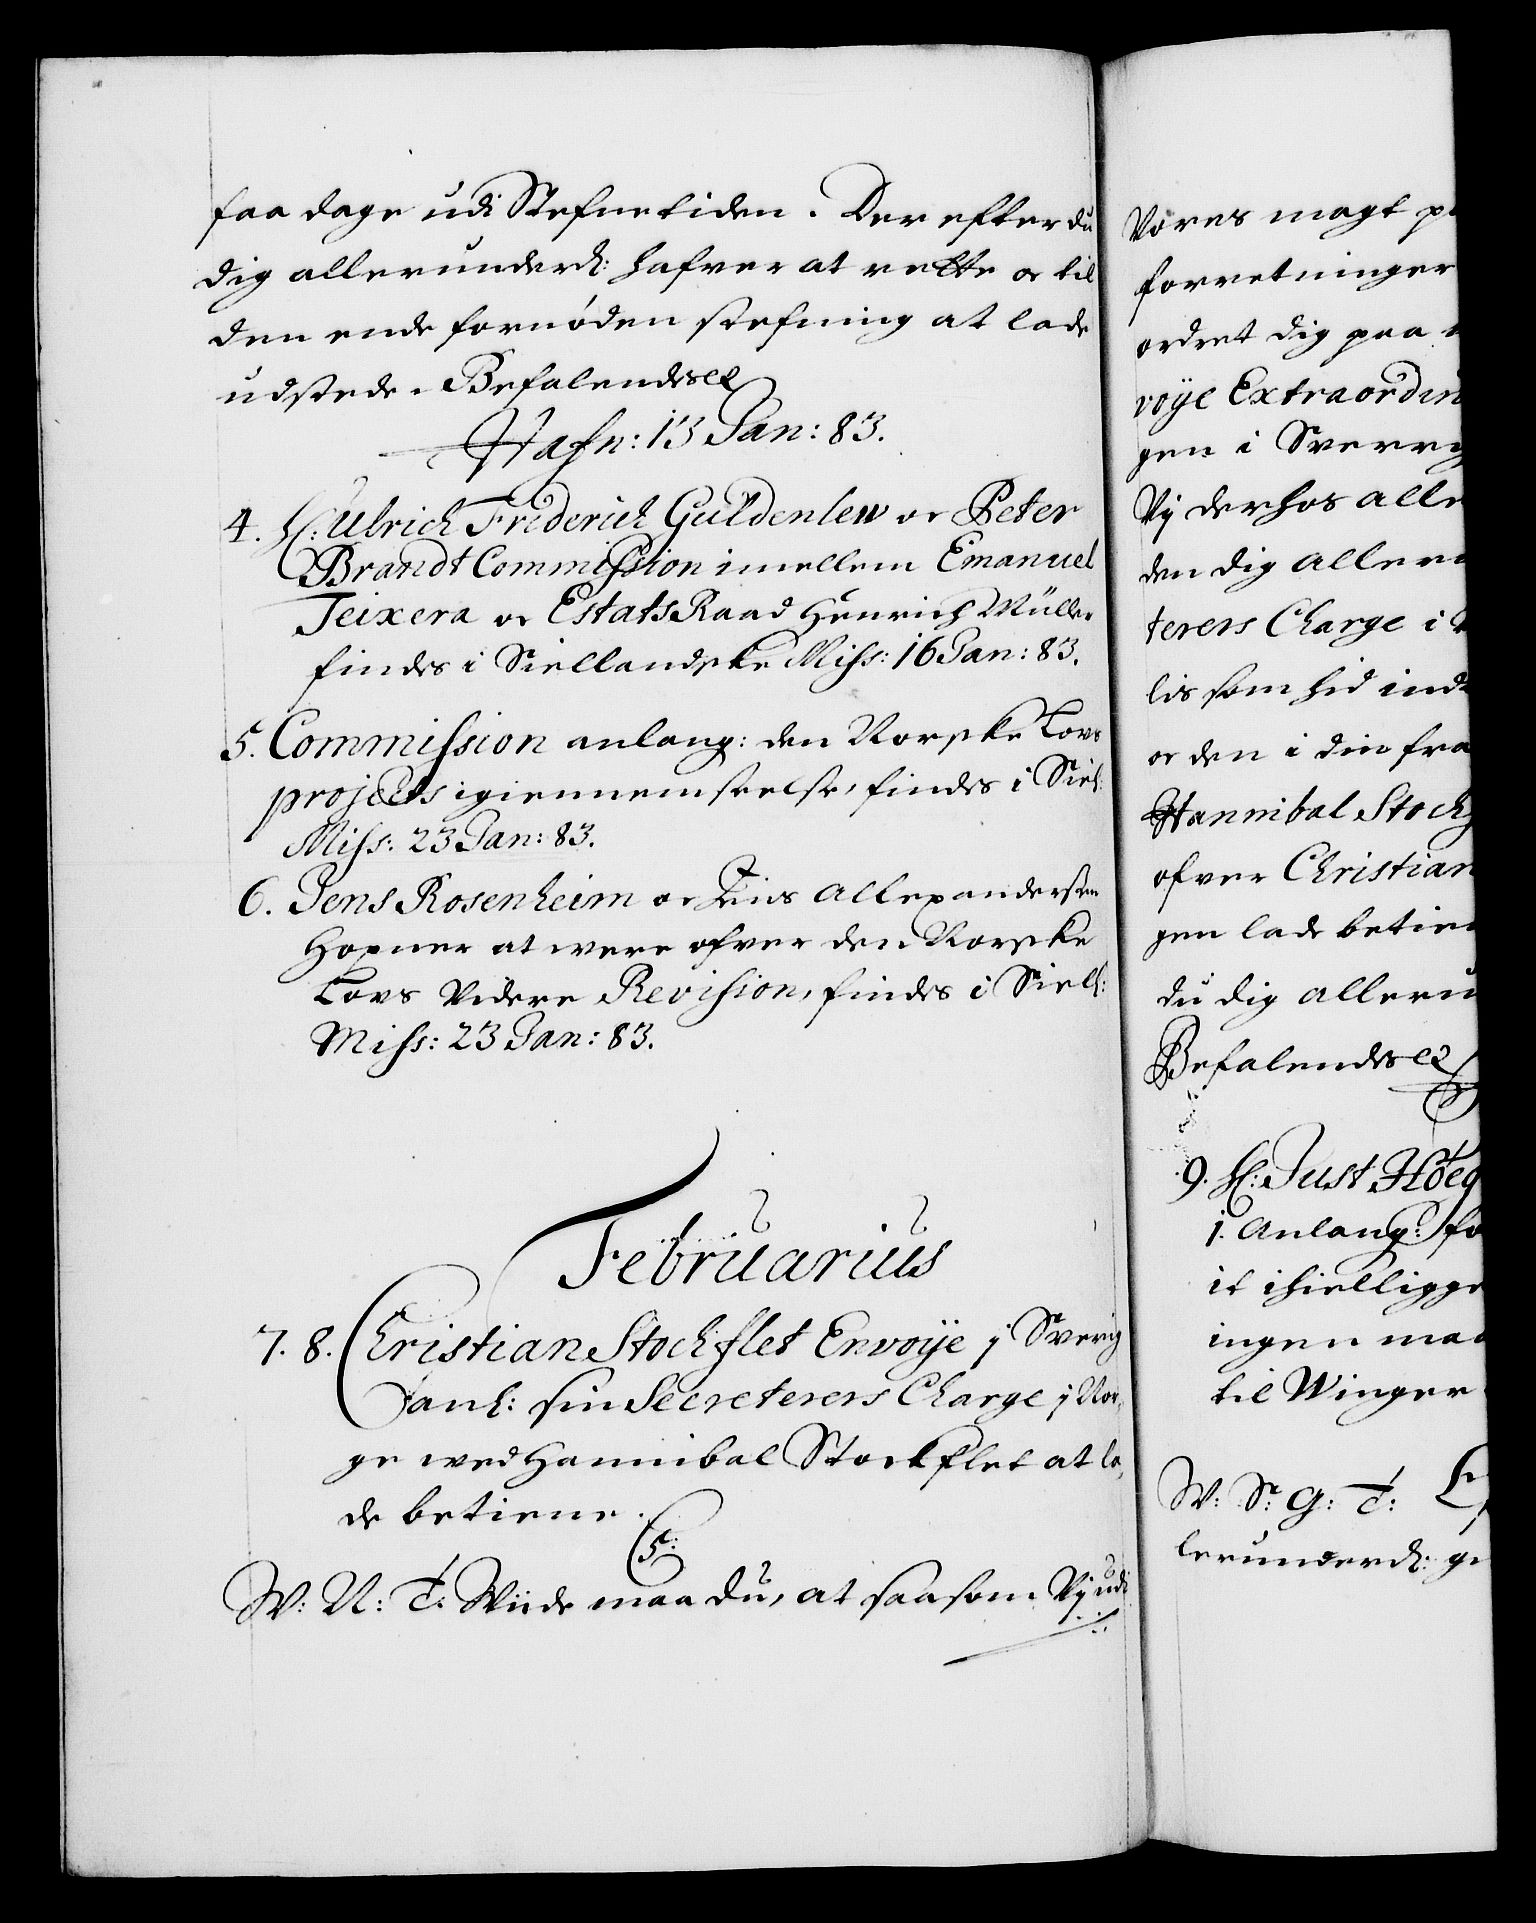 faa dage udi Stefnetiden. Der efter du
dig allerunderd: hafver at rette oc til
den ende fornöden stefning at lade
udstede. Befalendes etc
Hafn: 13 Jan: 83.
4. H: Ulrich Friderich Guldenlew oc Peter
Brandt Commission imellem Emanuel
Teixera oc Estats Raad Henrich Müller
findes i Siellandske Miss: 16 Jan: 83.
5. Commission anlang: den Norske Lovs
projects igiennemseelse, findes i Siel:
Miss: 23 Jan: 83.
6. Jens Rosenheim oc Allexandersen
Hopner at were ofver den Norske
Lovs Videre Revision, findes i Siell:
Miss: 23 Jan: 83.
Februarius
7. 8. Christian Stochflet Envoÿe j Sverig
anl: sin Secreterers Charge j Nor,
ge wed Hannibal Stockflet at la,
de betiene.
C5:
W: N: T: Wiide maa du, at saasom Vij udi
Vores magt p
forretninger
ordret dig paa
voÿe Extraordin
gen i Sverrig
Vij derhos alle
den dig alleru
terers Charge i
lis som hid ind
oc den i din fra
Hannibal Stoch
ofver Christian
gen lade betien
du dig alleru
Befalendes etc
9. H: Just Höeg
i Anlang: fo
it ihielligge
ingen maa
til Winger
W: S: G: T:
lerunderd: gi